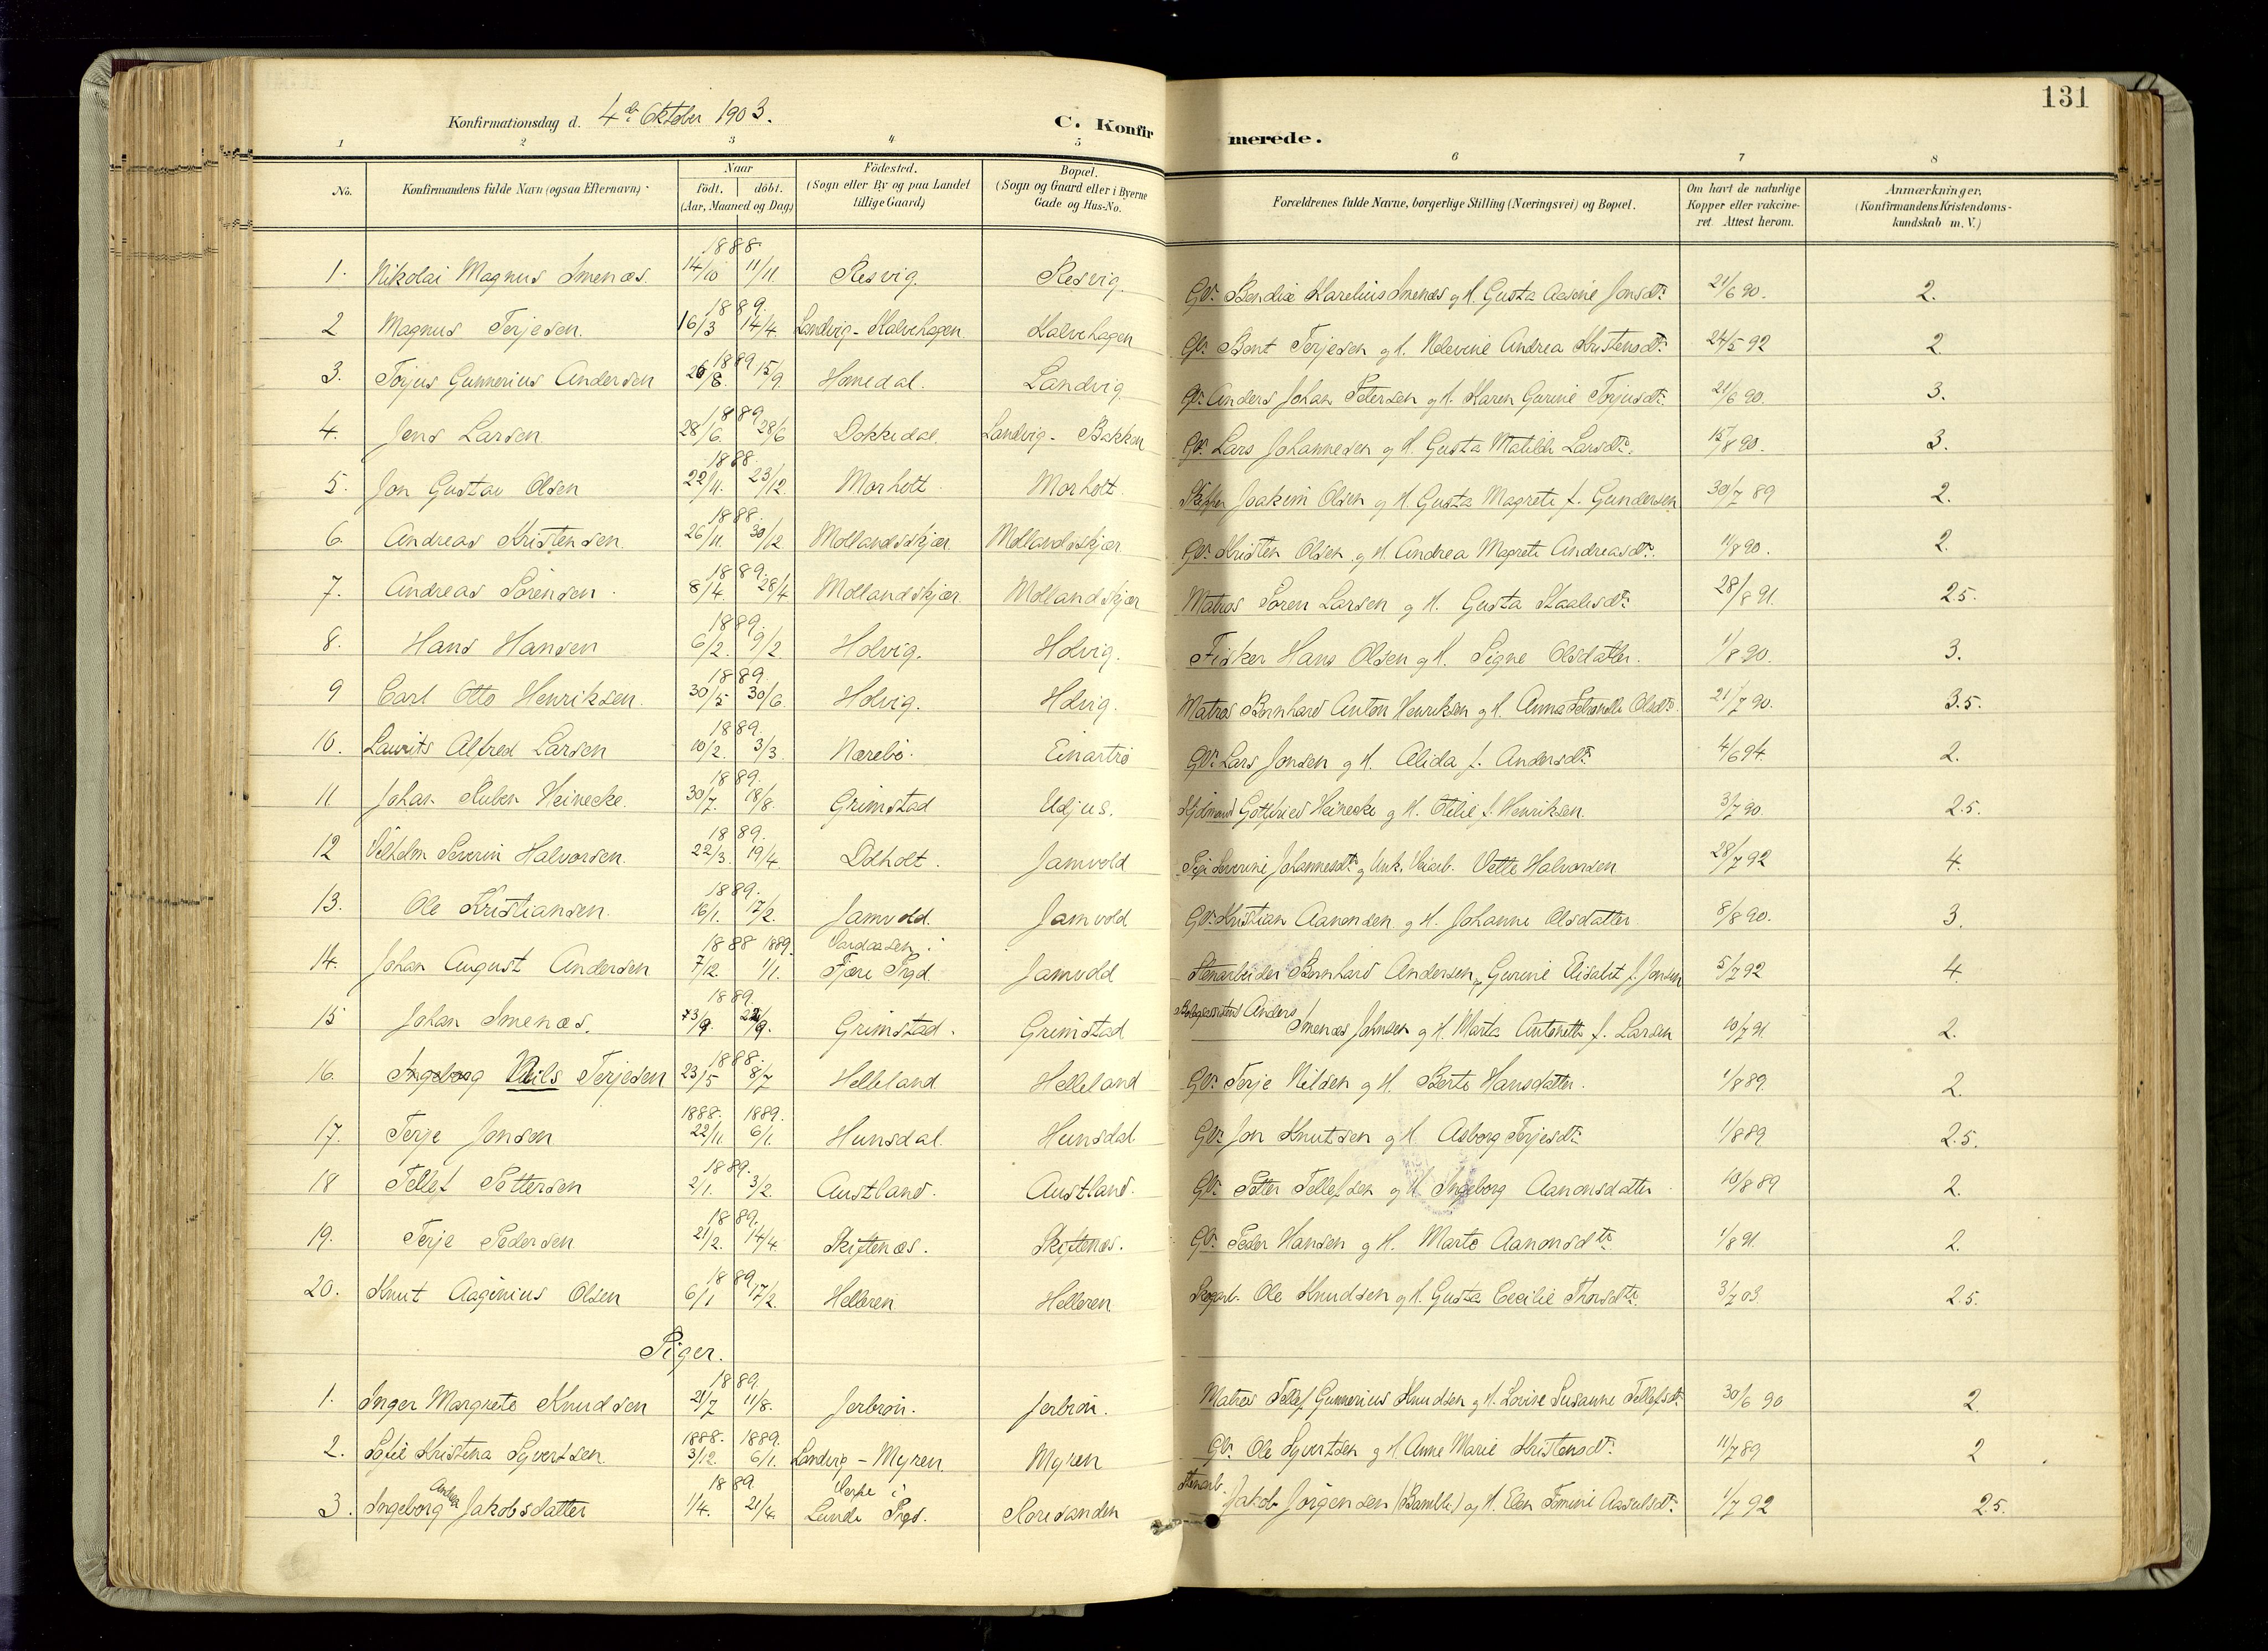 131
Konfirmationsdag d. 4de Oktober 1903.
C. Konfirmerede.
1 2 3 4 5 6 7 8
No.
Konfirmandens fulde Navn (ogsaa Efternavn).
Naar
födt. döbt.
(Aar, Maaned og Dag)
Födested.
(Sogn eller By og paa Landet
tillige Gaard)
Bopæl.
(Sogn og Gaard eller i Byerne
Gade og Hus-No.
Forældrenes fulde Navne, borgerlige Stilling (Næringsvei) og Bopæl.
Om havt de naturlige
Kopper eller vakcine-
ret. Attest herom.
Anmærkninger.
(Konfirmandens Kristendoms-
kundskab m. V.)
1. Nikolai Magnus Smenæs. 1888 14/10 11/11. Resvig. Resvig. Gbr. Bendix Karelius Smenæs og H. Gusta Aasine Jonsdtr. 21/6 90. 2.
2 Magnus Terjesen. 1889. 16/3 14/4. Landvig-Kalvehagen. Kalvehagen Gbr. Bent Terjesen og H. Nelevine Andrea Kristensdtr. 24/5 92 2.
3. Torjus Gunnerius Andersen 1889 26/8. 15/9. Homedal. Landvig Gbr. Anders Johan Petersen og H. Karen Gurine Torjusdtr. 21/6 90. 3.
4. Jens Larsen 1889 28/6. 28/6 Dokkedal. Landvig - Bakken Gbr. Lars Johannesen og H. Gusta Matilde Larsdtr. 15/8 90. 3.
5. Jon Gustav Olsen 1888. 22/11. 23/12. Morholt Morholt. Skipper Joakim Olsen og H. Gusta Magrete f. Gundersen 30/7 89 2.
6. Andreas Kristensen. 1888. 26/11. 30/12 Mollandsskjær. Mollandsskjær. Gbr. Kristen Olsen og H. Andrea Magrete Andreasdtr. 11/8 90. 2.
7. Andreas Sörensen. 1889. 8/4. 28/4 Mollandskjær. Mollandskjær Matros Sören Larsen og H. Gusta Staalesdtr. 28/8 91. 2.5.
8. Hans Hansen 1889. 6/2. 9/2 Holvig. Holvig. Fisker Hans Olsen og H. Signe Olsdatter. 1/8 90. 3.
9 Carl Otto Henriksen. 1889. 30/5 30/6. Holvig. Holvig. Matros Bernhard Anton Henriksen og H. Anna Olsdtr. 21/7 90. 3.5.
10. Laurits Alfred Larsen 1889. 10/2. 3/3. Nærebö. Einartrö Gbr. Lars Jonsen og H. Alida f. Andersdtr. 4/6 94. 2.
11 Johan Ruben Heinecke. 1889. 30/7. 18/8. Grimstad Udjus. Gottfried Heinecke og H. Otilie f. Henriksen. 3/7 90. 2.5.
12 Vilhelm Severin Halvorsen. 1889. 22/3. 19/4. Dolholt. Jamvold Pige Severine Johannesdtr. og Unk. Veiarb. Vette Halvorsen 28/7 92 4.
13. Ole Kristiansen. 1889. 16/1. 17/2. Jamvold. Jamvold Gbr. Kristian Aanonsen og H. Johanne Olsdatter 8/8 90. 3.
14. Johan August Andersen 1888 7/12. 1889. 1/1. Vardaasen i Fjære Prgd. Jamvold Stenarbeider Bernhard Andersen og Gurine Elisabet f. Jonsen 5/7 92 4.
15 Johan Smenæs. 1889. 23/9. Grimstad. Grimstad Anders Smenæs Johnsen og H. Marta Antonette f. Larsen 10/7 91. 2.
16. Ingeborg Nils Terjesen 1888. 23/5 8/7 Helleland Helleland Gbr. Terje Nilsen og H. Berte Hansdatter. 1/8 89. 2.
17. Terje Jonsen 1888. 22/11. 1889. 6/1. Hunsdal. Hunsdal Gbr. Jon Knutsen og H. Asborg Terjesdtr. 1/8 89. 2.5.
18 Tellef Pettersen 1889. 2/1. 3/2. Austland. Austland. Gbr. Petter Tellefsen og H. Ingeborg Aanonsdatter 10/8 89 2.
19. Terje Pedersen 1889. 21/2. 14/4. Skiftenæs. Skiftenæs. Gbr. Peder Hansen og H. Marte Aanonsdtr. 1/8 91 2.
20. Knut Aaginius Olsen 1889 6/1 17/2. Helleren Helleren Skogarb. Ole Knudsen og H. Gusta Cecilie Thorsdtr. 3/7 03. 2.5.
Piger.
1. Inger Margrete Knudsen 1889. 21/7 11/8. Jerbroi. Jerbroi. Matros Tellef Gunnerius Knudsen og H. Lovise Susanne Tellefsdtr. 30/6 90 2.
2. Sofie Kristina Syvertsen. 1888. 3/12. 1889. 6/1. Landvig - Myren. Myren Gbr. Ole Syvertsen og H. Anne Marie Kristensdtr. 11/7 89 2
3. Ingeborg Andrea Jakobsdatter 1889 1/4. 21/4 i Lunde Prgd. Roresanden Stenarb. Jakob Jörgensen (Bamble) og H. Elen Tomine Aasulsdtr. 1/7 92 2.5.